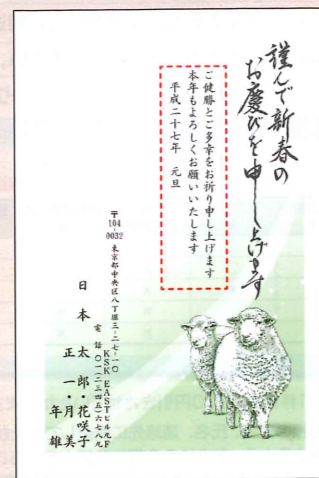 謹んで新春の
お慶びを申し上げます
ご健勝とご多幸をお祈り申し上げます
本年もよろしくお願いいたします
平成二十七年 元旦
〒104-0032 東京都中央区八丁堀三-二七-一〇
KSK EASTビル九F
電話〇一二-三四五-六七八九
日本 太郎・花咲子
正一・月美
年雄